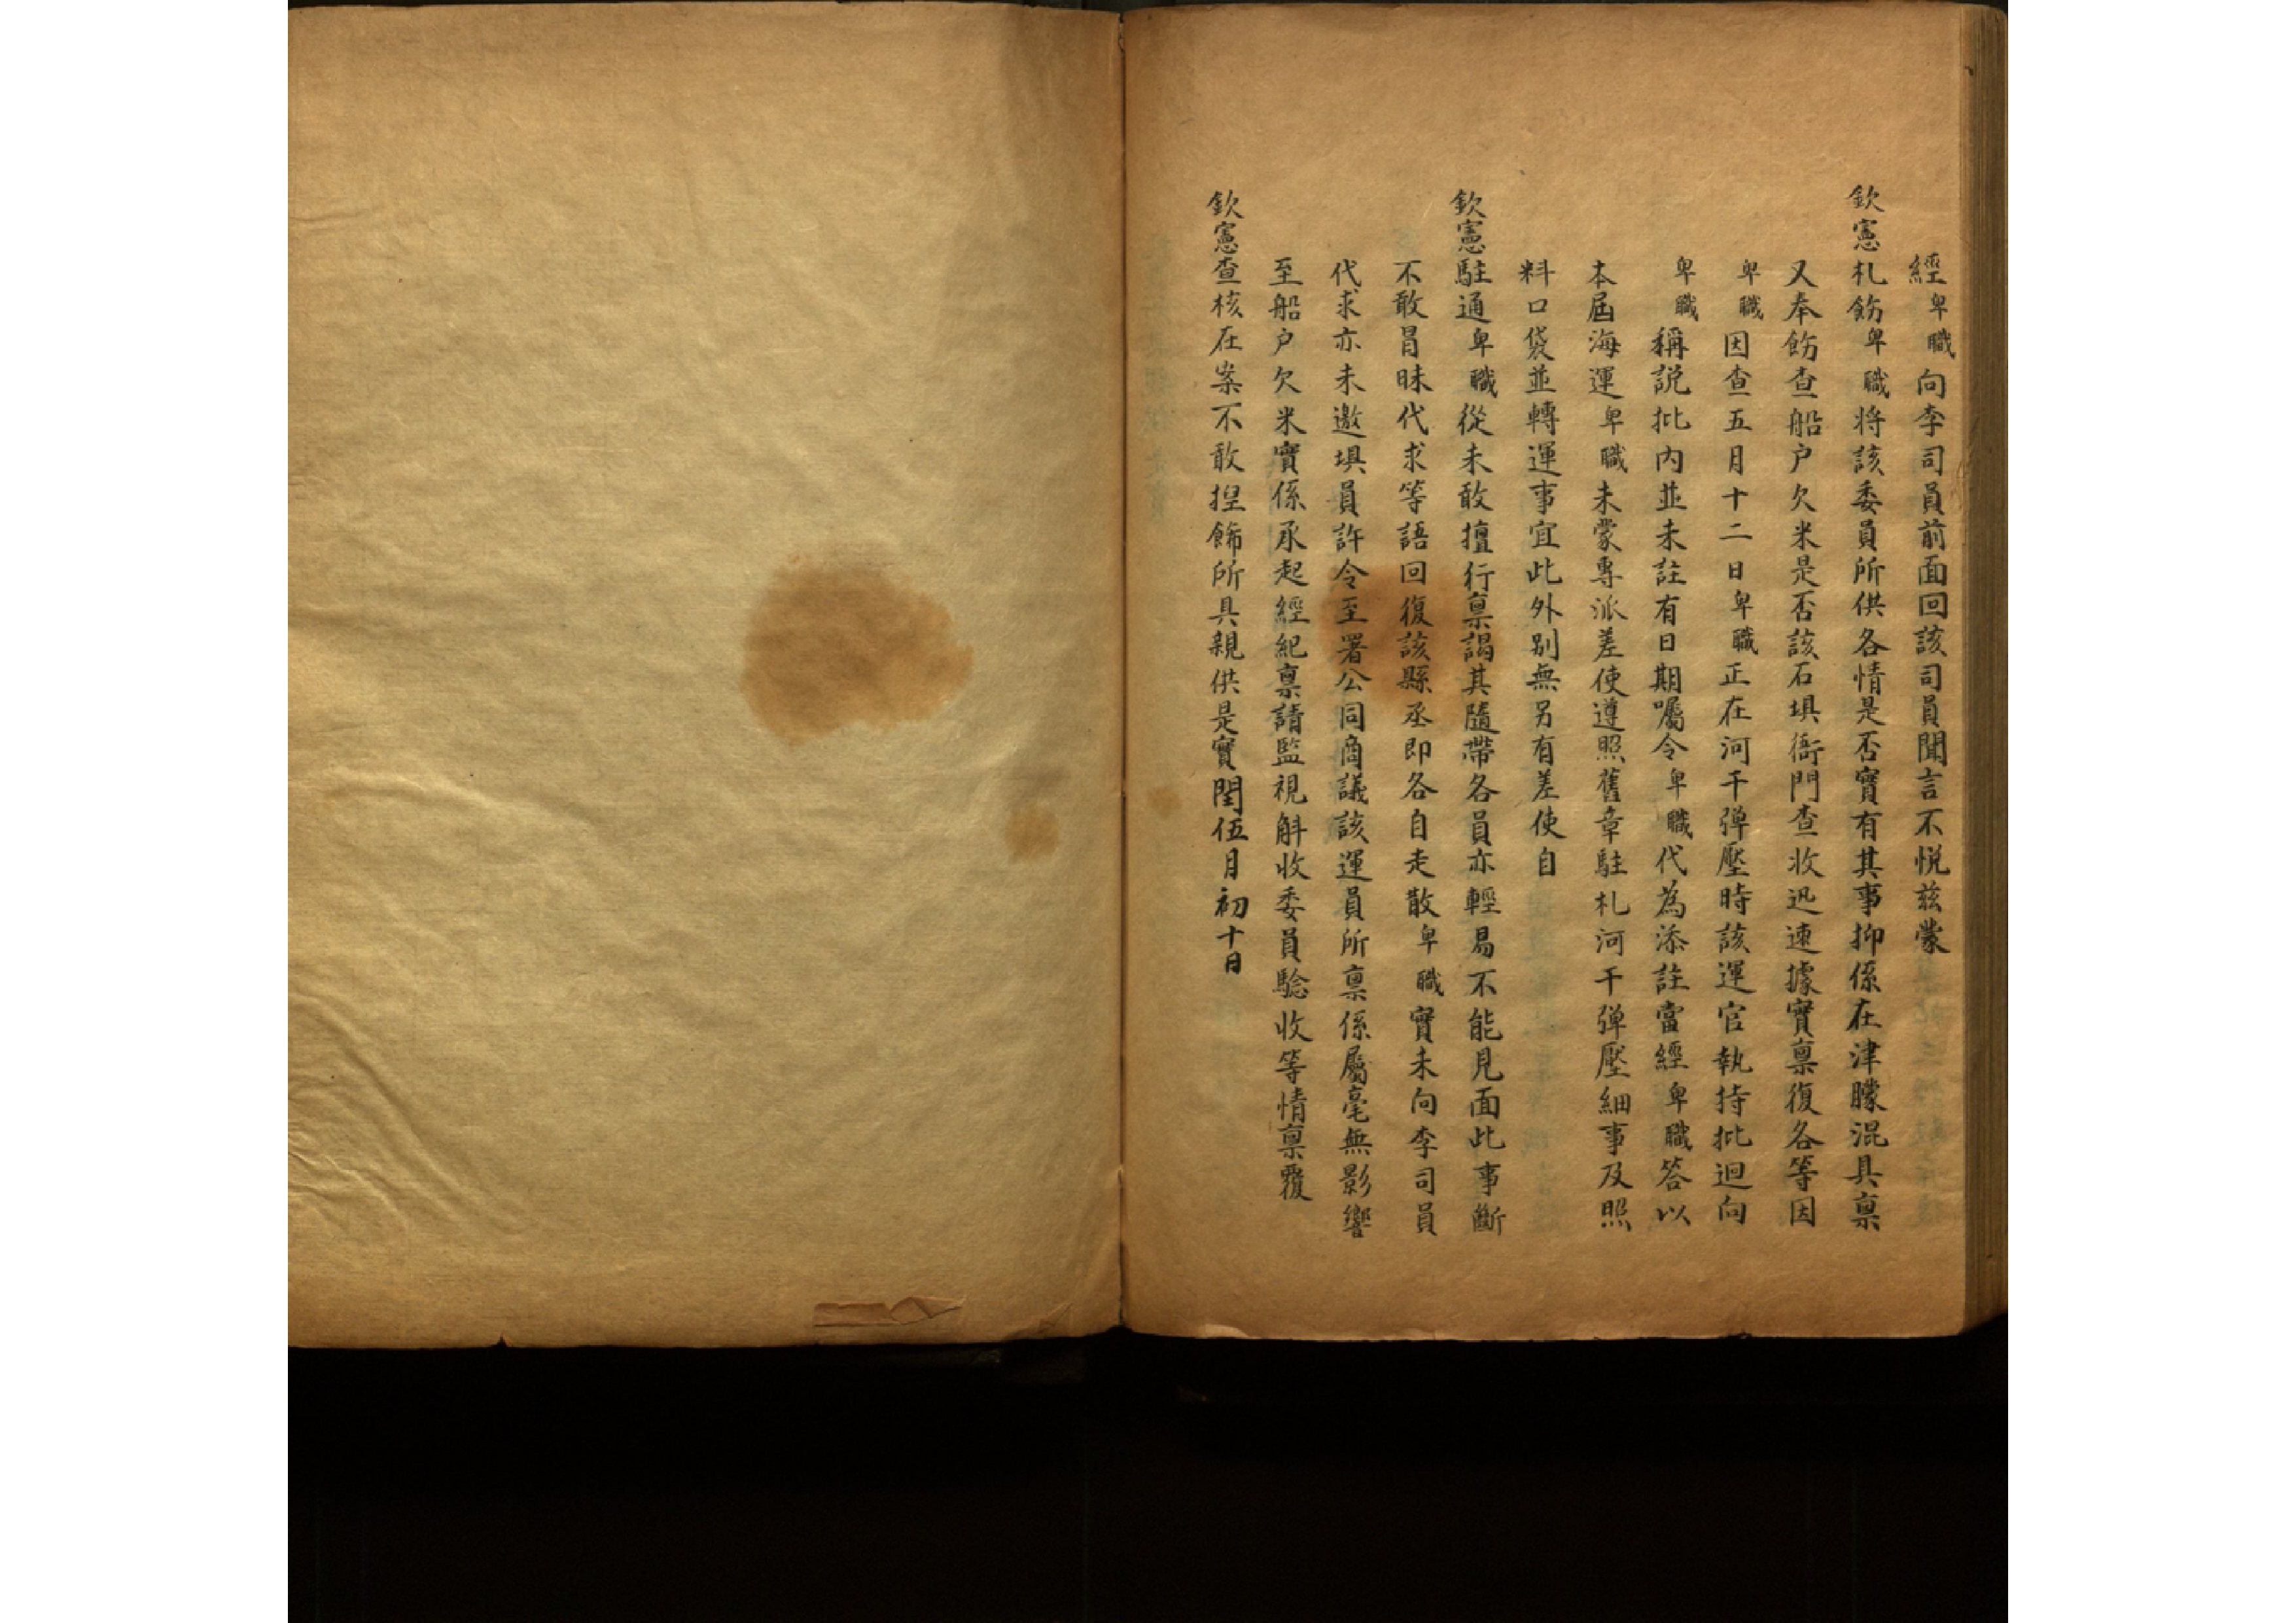 經卑職向李司員前面回該司員聞言不悦兹蒙
欽憲札飭卑職将該委員所供各情是否實有其事抑係在津矇混具禀
又奉飭查船户欠米是否該石埧衙門查收迅速據實禀復各等因
卑職因查五月十二日卑職正在河干弹壓時該運官執持批迴向
卑職稱説批内並未註有日期囑令卑職代為添註當經卑職答以
本屆海運卑職未蒙專派差使遵照舊章駐札河干弹壓細事及照
料口袋並轉運事宜此外别無另有差使自
欽憲駐通卑職從未敢擅行禀謁其隨帶各員亦輕易不能見面此事斷
不敢冒昧代求等語回復該縣丞即各自走散卑職實未向李司員
代求亦未邀埧員許令至署公同商議該運員所禀係屬毫無影響
至船户欠米實係承起經紀禀請監視斛收委員驗收等情禀覆
欽憲查核在案不敢揑飾所具親供是實閏伍月初十日